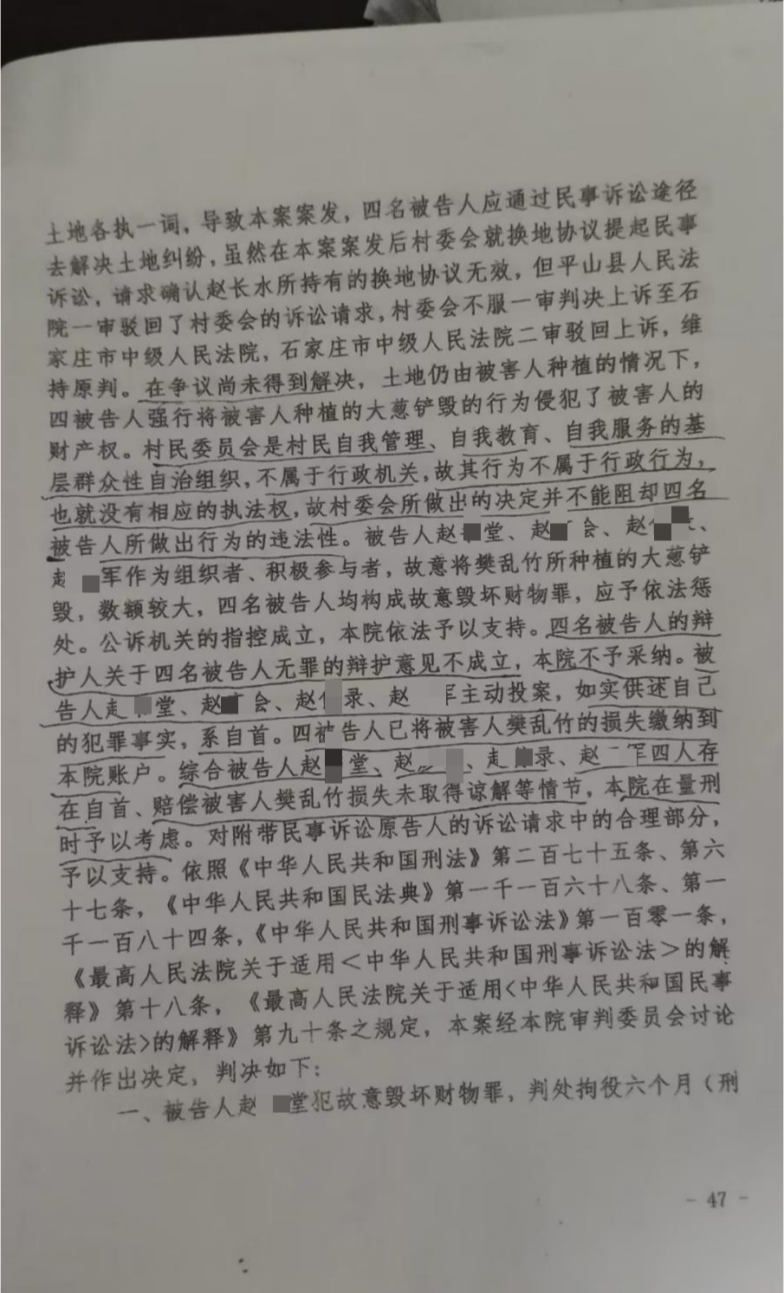 土地各执一词，导致本案案发，四名被告人应通过民事诉讼途径
去解决土地纠纷，虽然在本案案发后村委会就换地协议提起民事
诉讼，请求确认赵长水所持有的换地协议无效，但平山县人民法
院一审驳回了村委会的诉讼请求，村委会不服一审判决上诉至石
家庄市中级人民法院，石家庄市中级人民法院二审驳回上诉，维
持原判。在争议尚未得到解决，土地仍由被害人种植的情况下，
四被告人强行将被害人种植的大葱铲毁的行为侵犯了被害人的
财产权。村民委员会是村民自我管理、自我教育、自我服务的基
层群众性自治组织，不属于行政机关，故其行为不属于行政行为，
也就没有相应的执法权，故村委会所做出的决定并不能阻却四名
被告人所做出行为的违法性。被告人赵堂、赵会、赵、
军作为组织者、积极参与者，故意将樊乱竹所种植的大葱铲
毁，数额较大，四名被告人均构成故意毁坏财物罪，应予依法惩
处。公诉机关的指控成立，本院依法予以支持。四名被告人的辩
护人关于四名被告人无罪的辩护意见不成立，本院不予采纳。被
告人赵堂、赵会、赵录、赵军主动投案，如实供述自己
的犯罪事实，系自首。四被告人已将被害人樊乱竹的损失缴纳到
本院账户。综合被告人赵堂、赵、录、赵军四人存
在自首、赔偿被害人樊乱竹损失未取得谅解等情节，本院在量刑
时予以考虑。对附带民事诉讼原告人的诉讼请求中的合理部分，
予以支持。依照《中华人民共和国刑法》第二百七十五条、第六
十七条，《中华人民共和国民法典》第一千一百六十八条、第一
千一百八十四条，《中华人民共和国刑事诉讼法》第一百零一条，
《最高人民法院关于适用<中华人民共和国刑事诉讼法>的解
释》第十八条，《最高人民法院关于适用<中华人民共和国民事
诉讼法>的解释》第九十条之规定，本案经本院审判委员会讨论
并作出决定，判决如下：
一、被告人赵堂犯故意毁坏财物罪，判处拘役六个月（刑
- 47 -